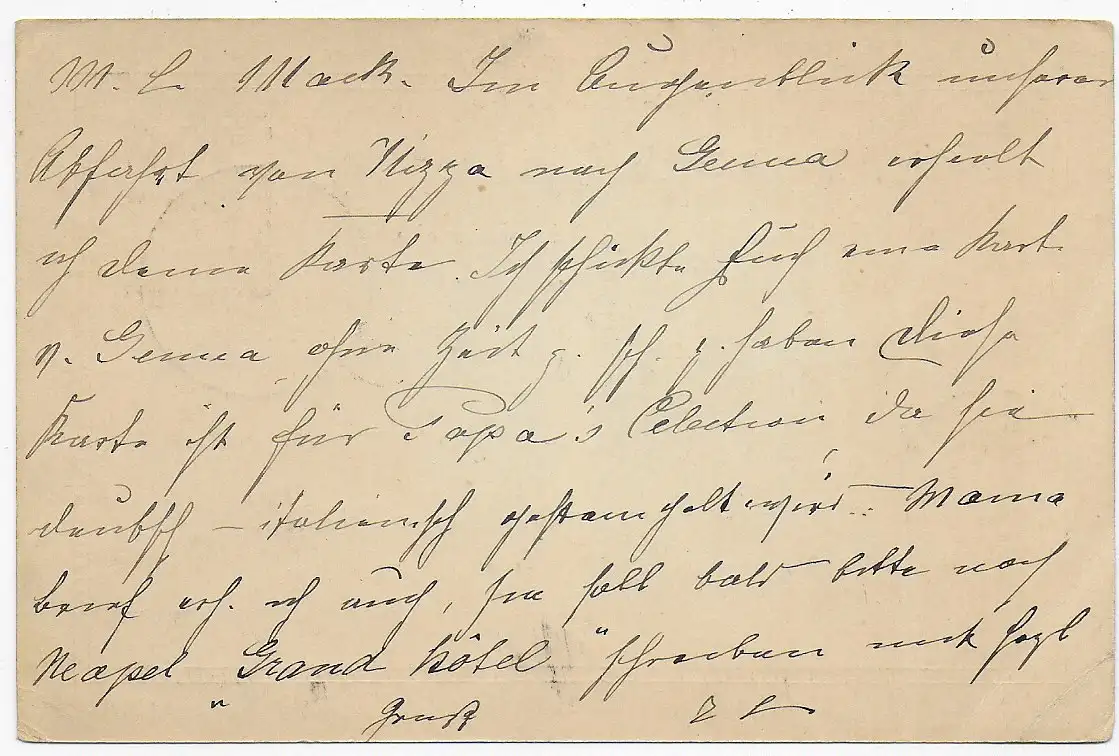 M. L. Mack. Im Augenblick unserer
Abfahrt von Nizza nach Genua erhielt
ich deine Karte. Ich schickte Euch eine Kart.
v. Genua ohne Zeit z. sch. z. haben diese
Karte ist für Papa's Colection da sie
deutsch – italienisch gestempelt wird. Mama
brief erh. ich auch, sie soll bald bitte nach
Neapel "Grand Hôtel" schreiben
Gruß